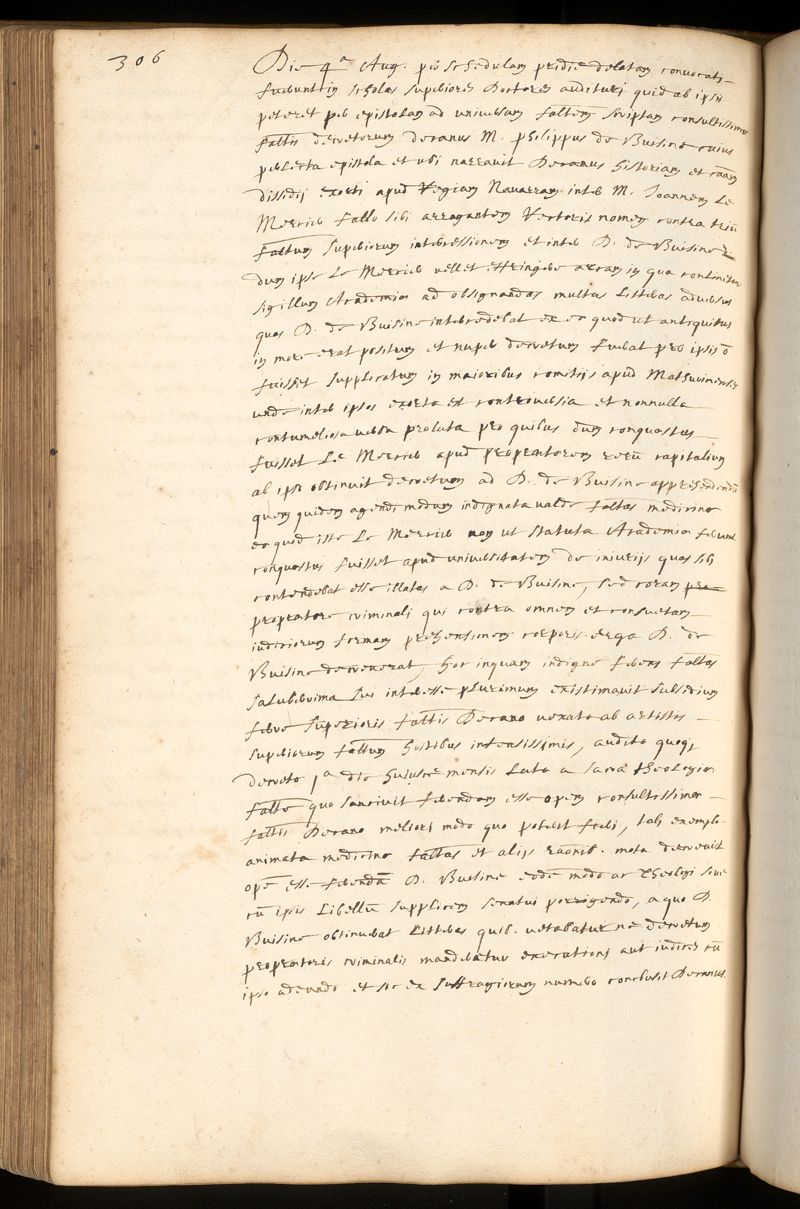 306
Die 4ª Aug. per schedulam pridie delatam convocati
fuerunt in scholas superiores Doctores audituri quid ab ipsis
peteret per epistolam ad universam facltem scriptam consultissimae
facltis decretorum decanus M. philippus de Buisine cuius
perlecta epistola et ubi narravit Decanus historiam et cãam
dissidij exorti apud Regiam Navarram inter M. Joannem Le
Mercier falso sibi arrogantem Rectoris nomen contra triũ
facltum superiorum intercessionem et inter D. de Buisine
dum ipse Le Mercier vellet effringere arcam in qua continetur
sigillum Academiae ad obsignandas multas litteras adversus
quas D. de Buisine intercedebat ex eo quod ut antiquitus
in more erat positum et nuper decretum fuerat pro ipsis õ
fuisset supplicatum in maioribus comitijs apud Mathurinenses
unde inter ipsos exorta est controversia et nonnulla
contumeliosa verba prolata pro quibus dum conquestus
fuisset Le Mercier apud propraetorem rerũ capitalium
ab ipso obtinuit decretum ad D. de Buisine apprehendendũ
quem quidem agendi modum indignata valde facltas medicinae
eo quod iste Le Mercier non ut statuta Academiae ferunt
conquestus fuisset apud universitatem de iniurijs quas sibi
contendebat esse illatas a D. de Buisine, sed coram
propraetore criminali qui contra omnem et consuetam
iudiciorum formam prehensionem corporis erga D. de
Buisine decreverat, hoc inquam indigne ferens facltas
saluberrima sua interesse plurimum existimavit subsidium
ferre superioris facltis Decano vexato ab artistis
superiorum facltum hostibus infensissimis, audito quoq;
decreto 1ª die huiusce mensis lato a sacra theologiae
faclte quo sancivit ferendam esse opem consultissimae
facltis Decano meliori modo quo poterit fieri, tali exemplo
animata medicinae facltas et alijs raõnib. mota decrevit
opẽ esse ferendã D. Buisine eodẽ modo ac theologi sive
cũ ipsis libellũ supplicem senatui porrigendo, a quo D.
Buisine obtinebat litteras quib. vetabatur ne decretum
propraetoris criminalis mandaretur executioni aut iudices cũ
ipso adeundo et sic ex suffragiorum numero conclusit Decanus.